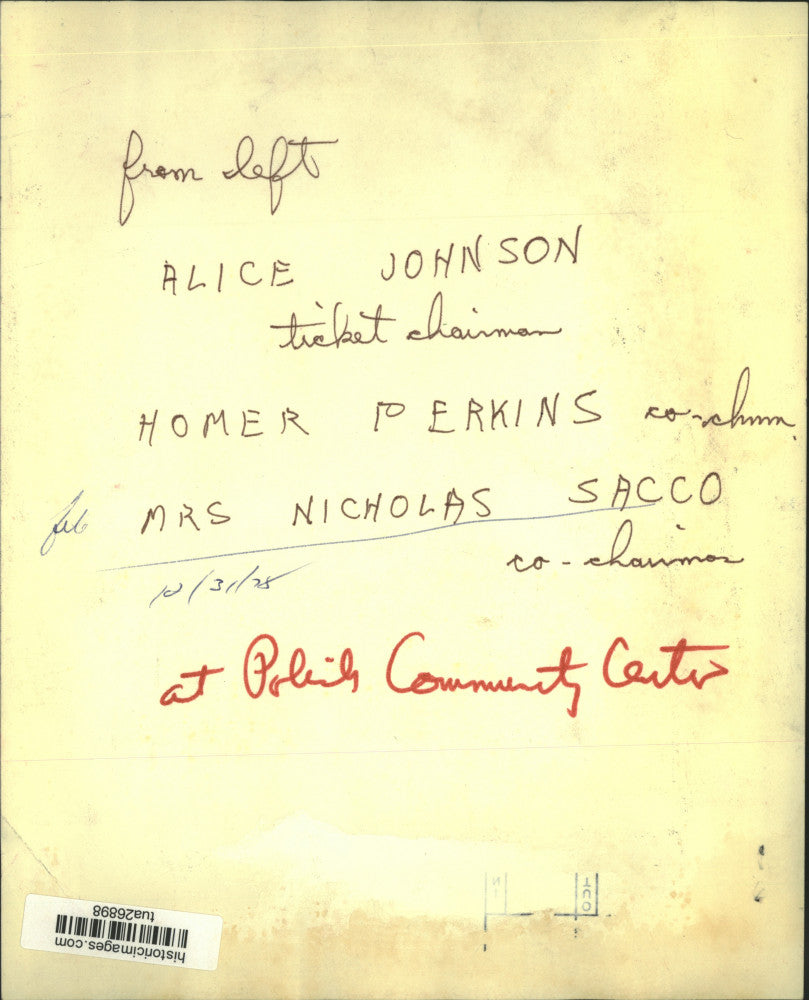 from left
ALICE JOHNSON
ticket chairman
HOMER PERKINS co-chmn.
MRS NICHOLAS SACCO
co-chairman
10/31/78
at Polish Community Center
IN
OUT
historicimages.com
tua26898